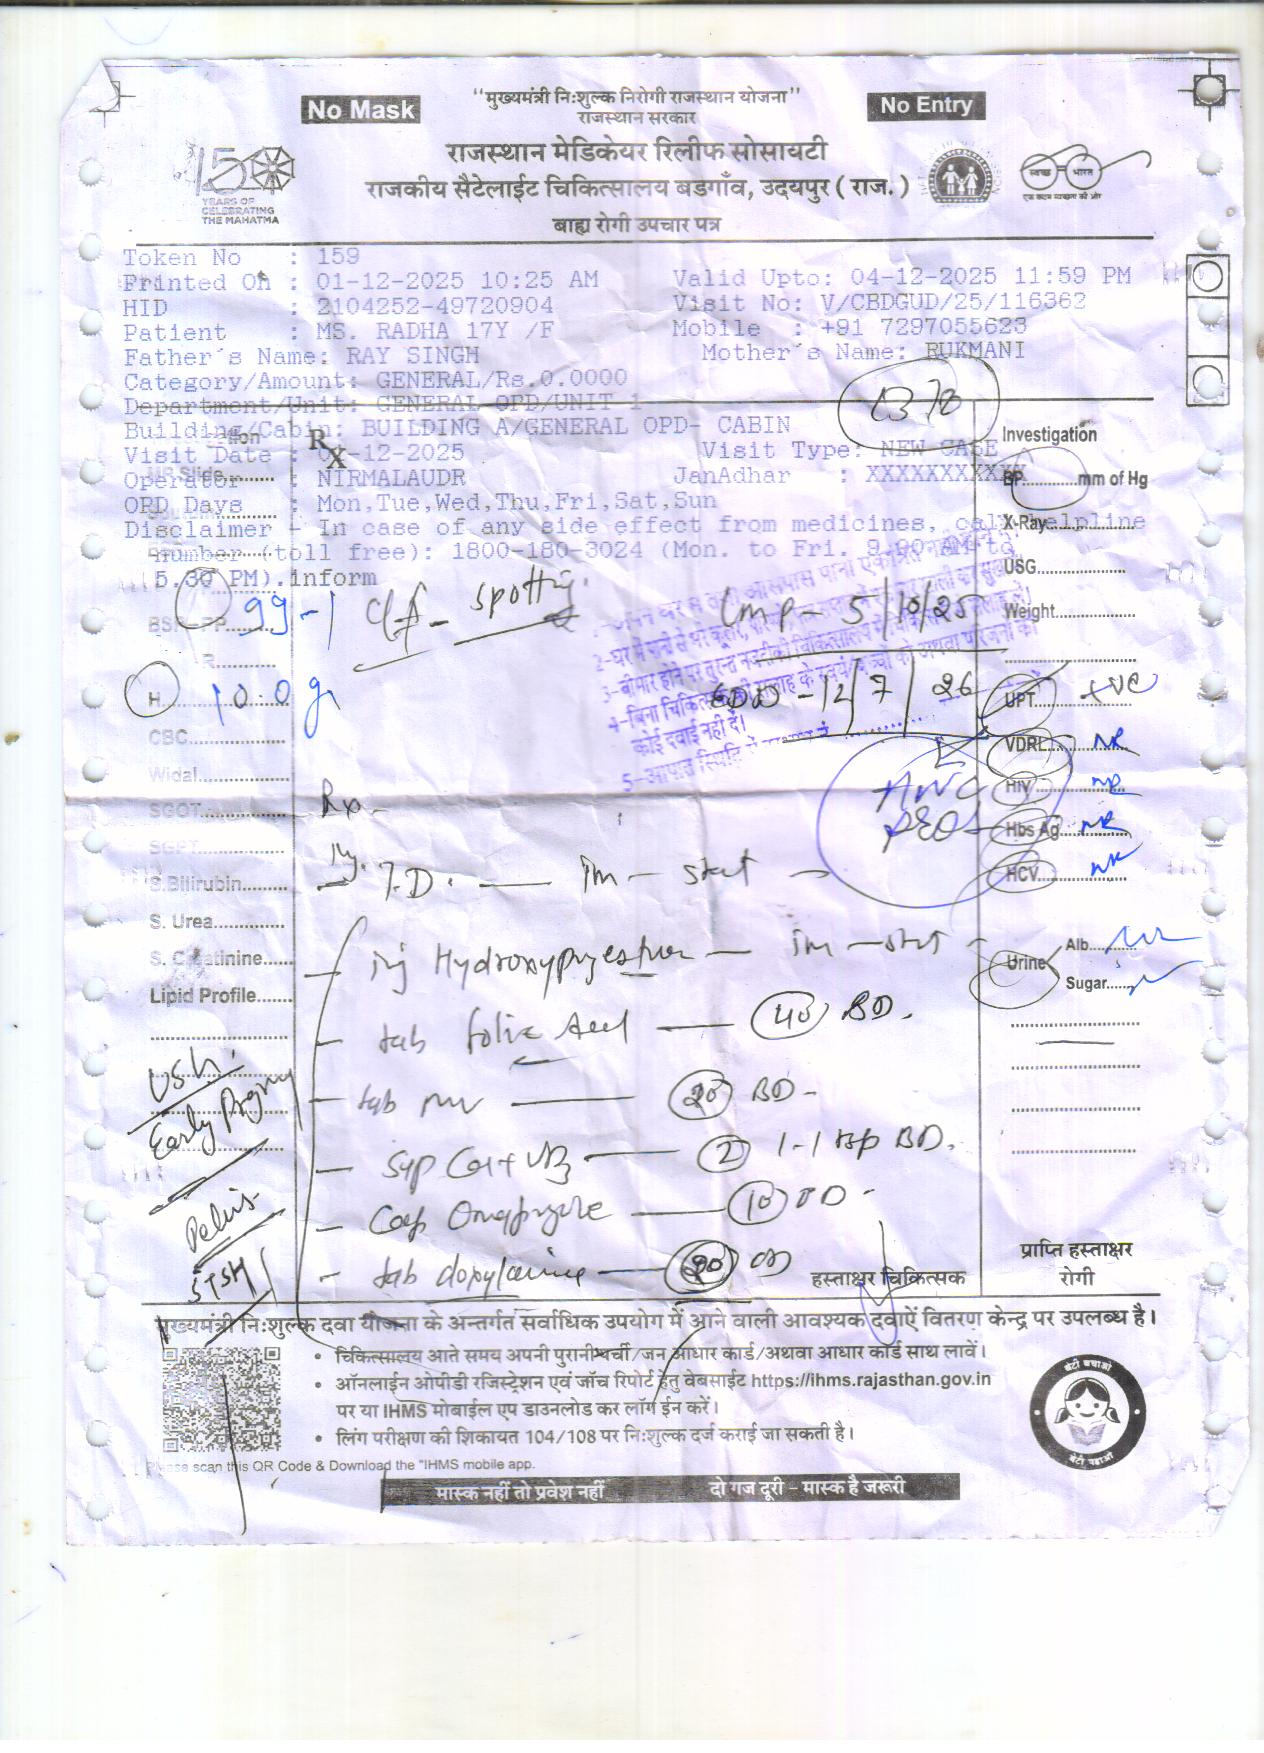 No Mask
"मुख्यमंत्री निःशुल्क निरोगी राजस्थान योजना"
No Entry
राजस्थान सरकार
राजस्थान मेडिकेयर रिलीफ सोसायटी
राजकीय सैटेलाईट चिकित्सालय बडगाँव, उदयपुर ( राज. )
बाह्य रोगी उपचार पत्र
150
YEARS OF
CELEBRATING
THE MAHATMA
स्वच्छ भारत
एक कदम स्वच्छता की ओर
Token No : 159
Printed On : 01-12-2025 10:25 AM Valid Upto: 04-12-2025 11:59 PM
HID : 2104252-49720904 Visit No: V/CBDGUD/25/116362
Patient : MS. RADHA 17Y /F Mobile : +91 7297055623
Father's Name: RAY SINGH Mother's Name: RUKMANI
Category/Amount: GENERAL/Rs.0.0000
Department/Unit: GENERAL OPD/UNIT 1
Building/Cabin: BUILDING A/GENERAL OPD- CABIN
Visit Date : -12-2025 Visit Type: NEW CASE
Operator : NIRMALAUDR JanAdhar : XXXXXXXXXXX
OPD Days : Mon,Tue,Wed,Thu,Fri,Sat,Sun
Disclaimer - In case of any side effect from medicines, call helpline
number (toll free): 1800-180-3024 (Mon. to Fri. 9.00 AM to
5.30 PM).inform
Rx
Investigation
BP............mm of Hg
X-Ray
USG
Weight
99-1
c/o - spotting
LMP - 5/10/25
H 10.0 g
EDD - 12/7/26
UPT +ve
VDRL NR
HIV NR
Hbs Ag NR
HCV NR
ANC
CBC
Widal
SGOT
SGPT
S.Bilirubin
S. Urea
S. Creatinine
Lipid Profile
Urine
Alb. Nil
Sugar
Rx -
Inj. T.D. — im - stat
inj Hydroxyprogesterone — im - stat
tab folic Acid — 40 BD.
tab MV — 20 BD -
Syp Cal + VD3 — 2 1-1 tsp BD.
Cap Omeprazole — 10 OD -
tab doxylamine — 20 OD
USG.
Early Pregn
Pelvis
STSH
हस्ताक्षर चिकित्सक
प्राप्ति हस्ताक्षर
रोगी
मुख्यमंत्री निःशुल्क दवा योजना के अन्तर्गत सर्वाधिक उपयोग में आने वाली आवश्यक दवाऐं वितरण केन्द्र पर उपलब्ध है।
• चिकित्सालय आते समय अपनी पुरानी पर्ची/जन आधार कार्ड/अथवा आधार कार्ड साथ लावें।
• ऑनलाईन ओपीडी रजिस्ट्रेशन एवं जाँच रिपोर्ट हेतु वेबसाईट https://ihms.rajasthan.gov.in
पर या IHMS मोबाईल एप डाउनलोड कर लॉग ईन करें।
• लिंग परीक्षण की शिकायत 104/108 पर निःशुल्क दर्ज कराई जा सकती है।
Please scan this QR Code & Download the "IHMS mobile app.
बेटी बचाओ
बेटी पढ़ाओ
मास्क नहीं तो प्रवेश नहीं दो गज दूरी - मास्क है जरूरी